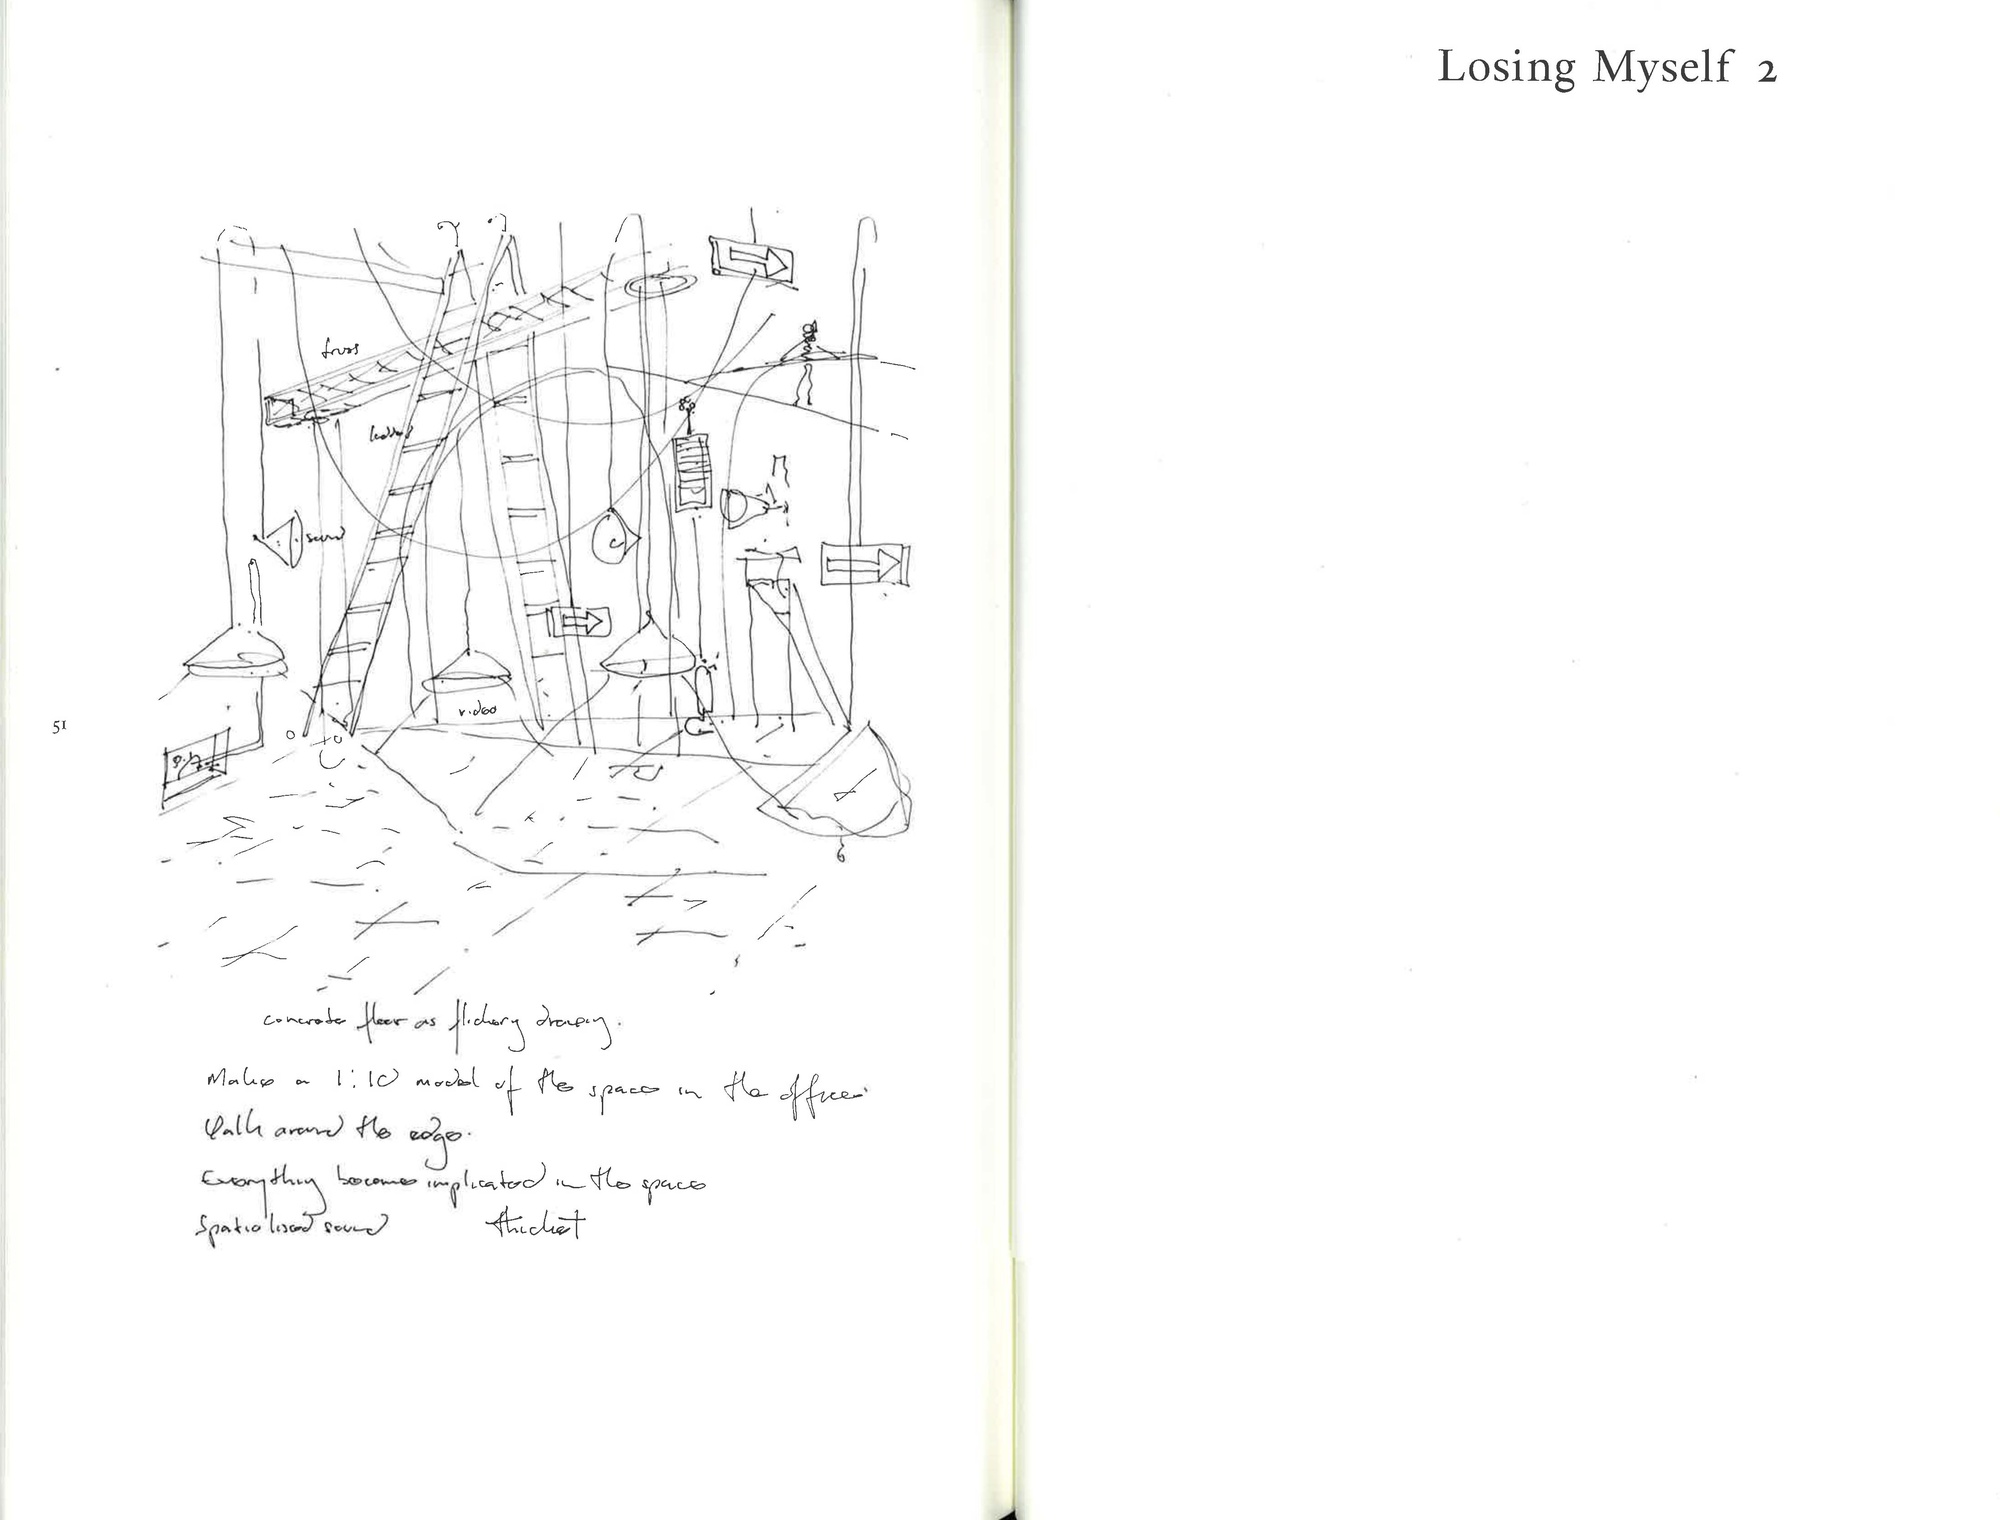 Losing Myself 2
truss
ladder
sound
video
51
concrete floor as flickery drawing.
Make a 1:10 model of the space in the office.
Walk around the edge.
Everything becomes implicated in the space
Spatialised sound thicket